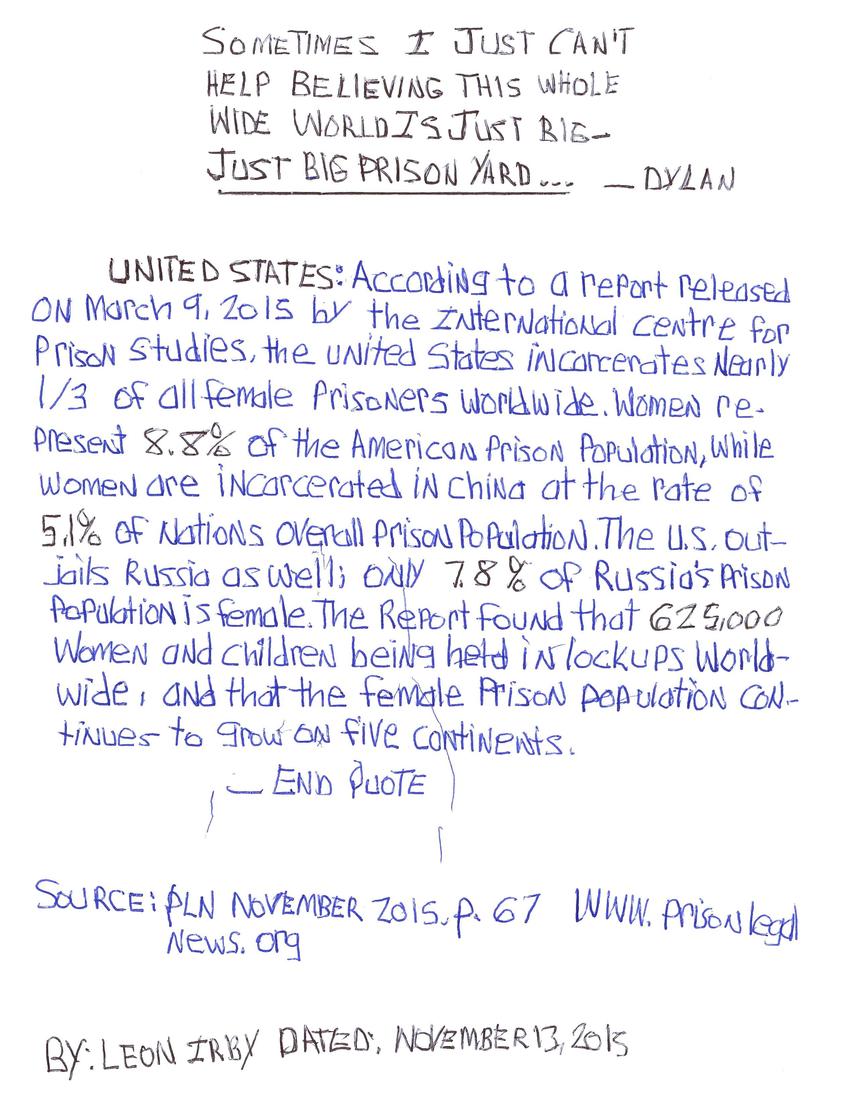 SOMETIMES I JUST CAN'T
HELP BELIEVING THIS WHOLE
WIDE WORLD IS JUST BIG-
JUST BIG PRISON YARD... — DYLAN
UNITED STATES: According to a report released
ON March 9, 2015 by the International centre for
Prison Studies, the united States incarcerates Nearly
1/3 of all female Prisoners worldwide. Women re-
present 8.8% of the American Prison Population, while
women are incarcerated in China at the rate of
5.1% of Nations overall Prison Population. The U.S. out-
jails Russia as well; only 7.8% of Russia's Prison
Population is female. The Report found that 625,000
Women and children being held in lockups World-
wide, and that the female Prison population con-
tinues to grow on five continents.
— END QUOTE
SOURCE: PLN NOVEMBER 2015, p. 67 WWW. Prison legal
News. org
BY: LEON IRBY DATED: NOVEMBER 13, 2015